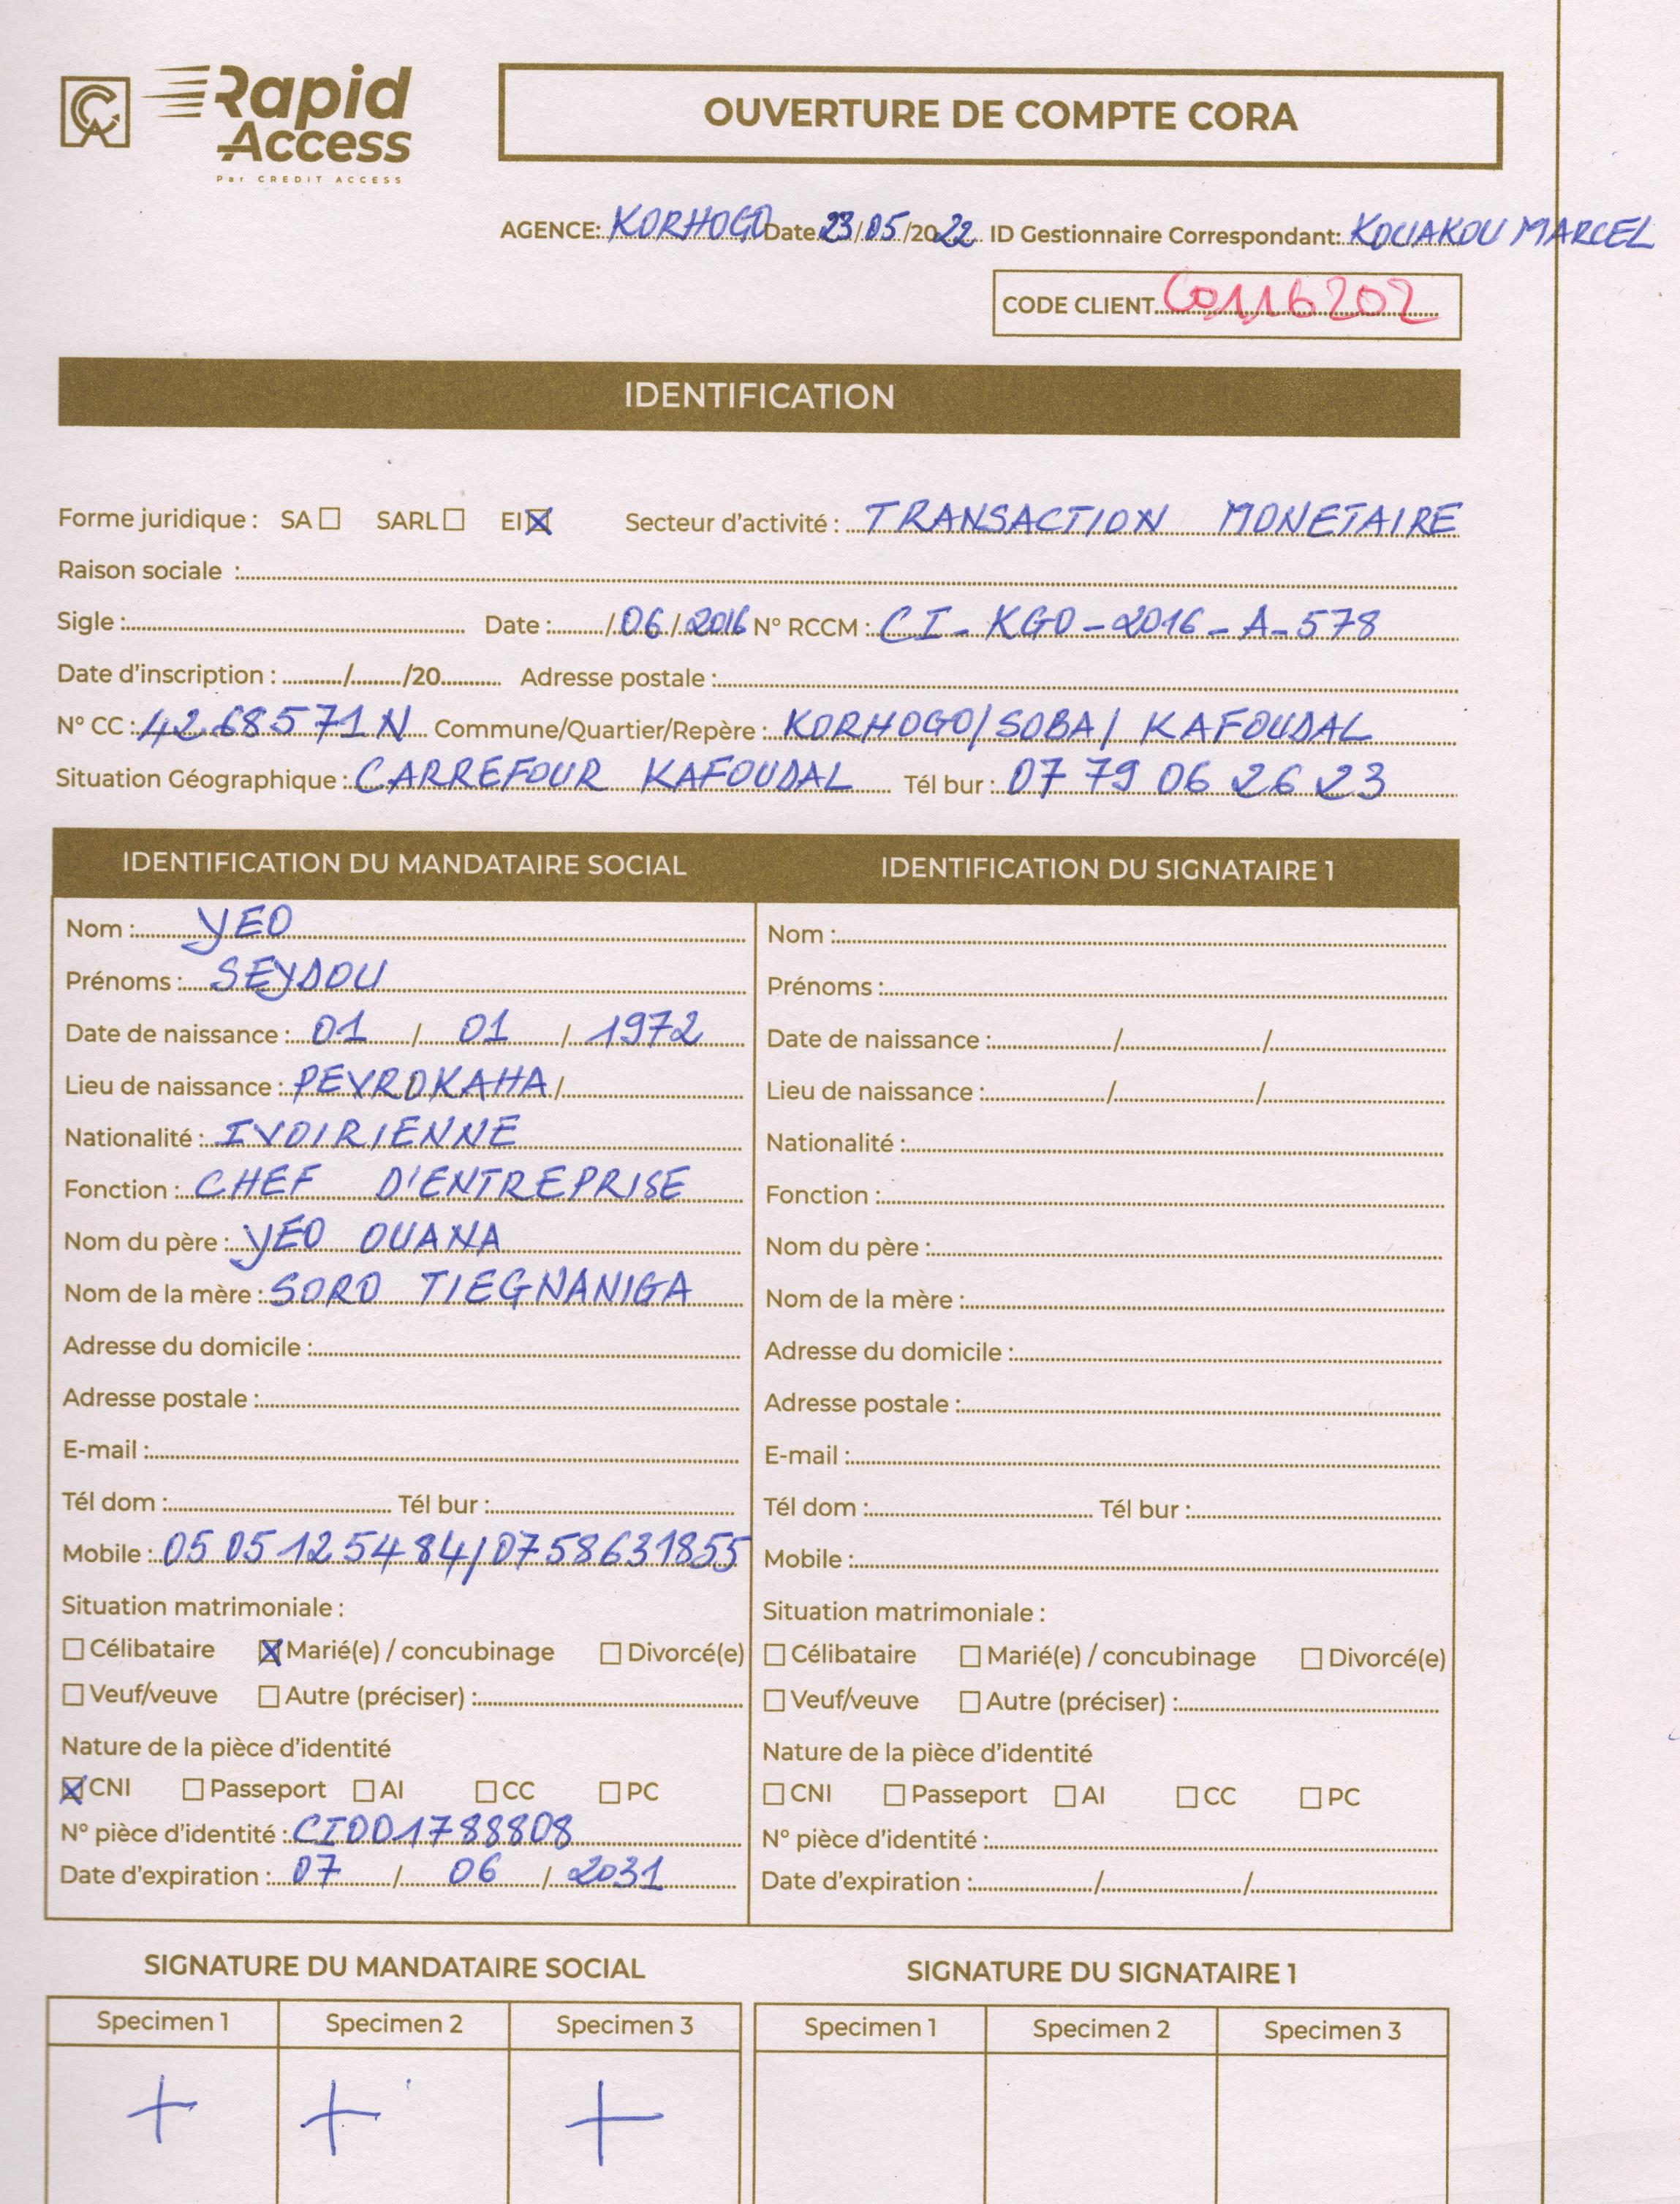 Rapid
Access
Par CREDIT ACCESS
OUVERTURE DE COMPTE CORA
AGENCE: KORHOGO Date 23/05/2022 ID Gestionnaire Correspondant: KOUAKOU MARCEL
CODE CLIENT 60116202
IDENTIFICATION
Forme juridique : SA ☐ SARL ☐ EI ☒ Secteur d'activité : TRANSACTION MONETAIRE
Raison sociale :
Sigle : Date : /06/2016 N° RCCM : CI-KGO-2016-A-578
Date d'inscription : / /20 Adresse postale :
N° CC : 4268571N Commune/Quartier/Repère : KORHOGO/SOBA/ KAFOUDAL
Situation Géographique : CARREFOUR KAFOUDAL Tél bur : 07 79 06 26 23
IDENTIFICATION DU MANDATAIRE SOCIAL
Nom : YEO
Prénoms : SEYDOU
Date de naissance : 01 / 01 / 1972
Lieu de naissance : PEVROKAHA /
Nationalité : IVOIRIENNE
Fonction : CHEF D'ENTREPRISE
Nom du père : YEO OUANA
Nom de la mère : SORO TIEGNANIGA
Adresse du domicile :
Adresse postale :
E-mail :
Tél dom : Tél bur :
Mobile : 05 05 12 54 84/0758631855
Situation matrimoniale :
☐ Célibataire ☒ Marié(e) / concubinage ☐ Divorcé(e)
☐ Veuf/veuve ☐ Autre (préciser) :
Nature de la pièce d'identité
☒ CNI ☐ Passeport ☐ AI ☐ CC ☐ PC
N° pièce d'identité : CI001788808
Date d'expiration : 07 / 06 / 2031
IDENTIFICATION DU SIGNATAIRE 1
Nom :
Prénoms :
Date de naissance : / /
Lieu de naissance : / /
Nationalité :
Fonction :
Nom du père :
Nom de la mère :
Adresse du domicile :
Adresse postale :
E-mail :
Tél dom : Tél bur :
Mobile :
Situation matrimoniale :
☐ Célibataire ☐ Marié(e) / concubinage ☐ Divorcé(e)
☐ Veuf/veuve ☐ Autre (préciser) :
Nature de la pièce d'identité
☐ CNI ☐ Passeport ☐ AI ☐ CC ☐ PC
N° pièce d'identité :
Date d'expiration : / /
SIGNATURE DU MANDATAIRE SOCIAL
Specimen 1 Specimen 2 Specimen 3
+ + +
SIGNATURE DU SIGNATAIRE 1
Specimen 1 Specimen 2 Specimen 3